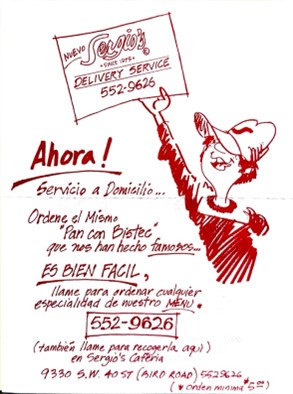 NUEVO
Sergio's
• SINCE 1975 •
DELIVERY SERVICE
552-9626
Ahora!
Servicio a Domicilio...
Ordene el Mismo
"Pan con Bistec"
que nos han hecho famosos...
ES BIEN FACIL,
llame para ordenar cualquier
especialidad de nuestro MENU.
552-9626
(también llame para recogerla aqui)
en Sergio's Caféria
9330 S.W. 40 ST (BIRD ROAD) 5529626
(* orden minima $5.00)